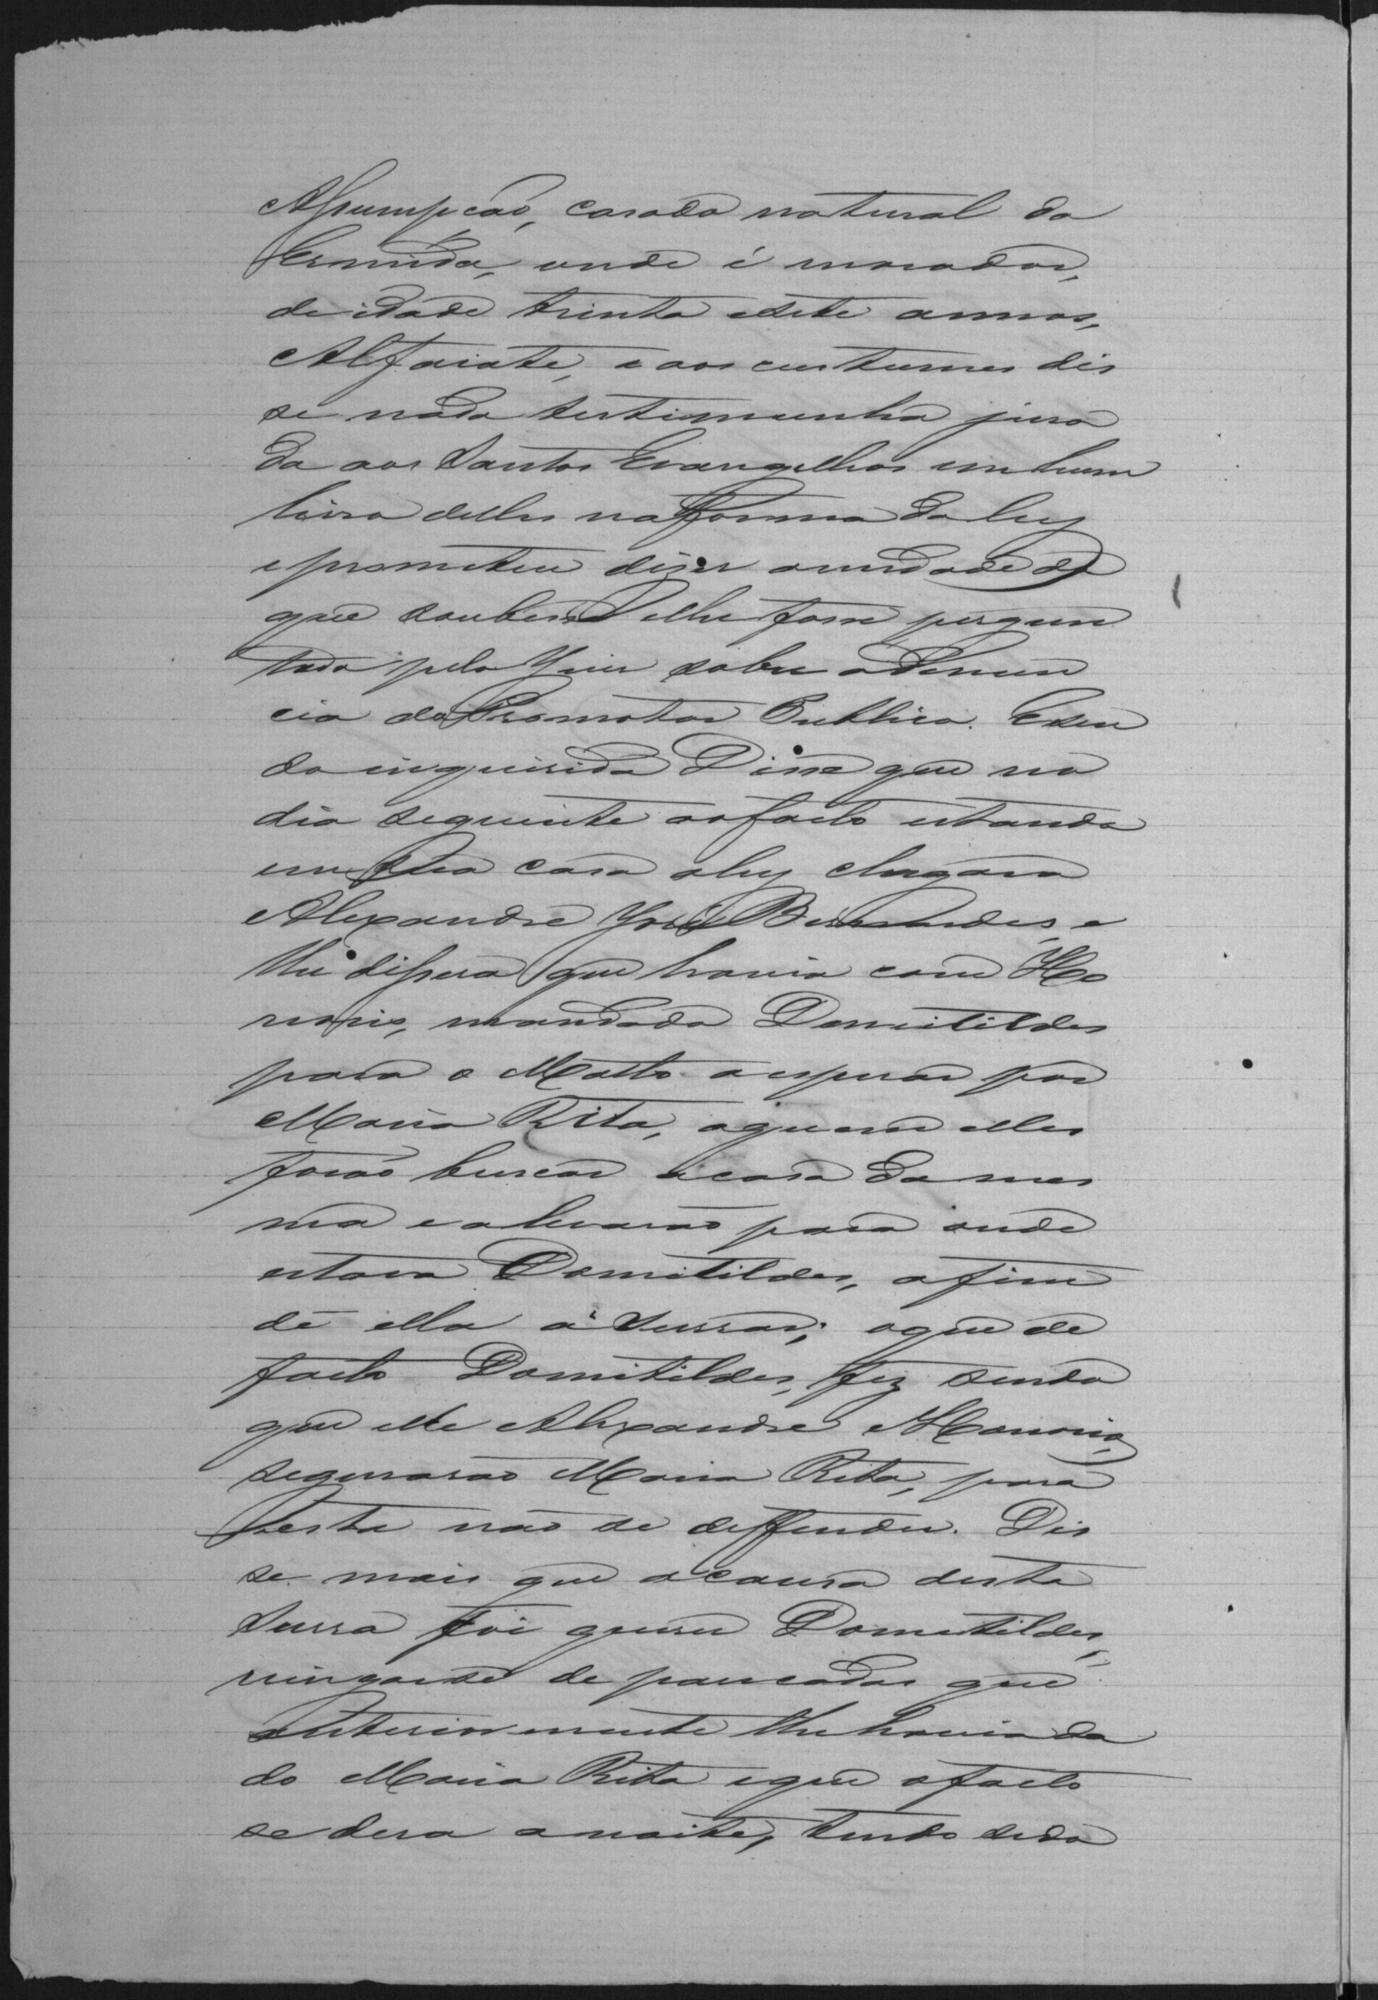 Assumpção, casado natural da
Ermida, onde é morador,
de idade trinta esete annos,
Alfaiate, e aos custumes dis
se nada testimunha jura
da aos Santos Evangelhos em hum
livro delles na forma da ley
e prometteu dizer averdade do
que soubesse elhe fosse pergun
tado pelo Juis sobre adenun
cia do Promotor Publico. Esen
do inquirida Disse que no
dia seguinte aofacto estando
em sua casa ahy chegara
Alexandre José Bernardes, e
lhe dissera que havia com Ho
norio, mandado Domitildes
para o Matto a esperar por
Maria Rita, aquem elles
forão buscar a casa da mes
ma e alevarão para onde
estava Domitildes, afim
de ella a surrar; oque de
facto Domitildes, fez sendo
que elle Alexandre e Honorio,
segurarão Maria Rita, para
esta não se deffender. Dis
se mais que acausa desta
surra foi querer Domitildes,
vingarse de pancadas que
anteriormente lhe havia da
do Maria Rita eque ofacto
se dera anoite, tendo sido